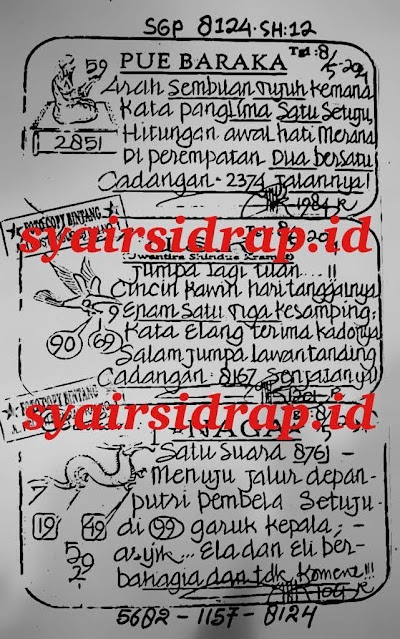 SGP 8124:SH:12
PUE BARAKA
Tgl:8/5-2021
59
Arah Sembilan Tujuh Kemana
Kata panglima Satu Setuju,
Hitungan awal hati Merana
2851
Di perempatan Dua bersatu
Cadangan-2374 Jalannya!
1984
FOTOCOPY BINTANG
syairsidrap.id
Jumpa lagi tuan....!!
Cincin Kawin hari tanggalnya
Enam Satu Tiga Kesamping;
Kata Elang terima Kadonya
90 69
Salam jumpa lawan tanding
Cadangan: 8167 Senjatanya
FOTOCOPY BINTANG
syairsidrap.id
NAGA
Satu Suara 8761 -
Menuju jalur depan-
putri Pembela Setuju-
19 49
di 99 garuk kepala; -
592
asyik... Ela dan Eli ber-
bahagia dan tdk Koment!!!
5682 - 1157 - 8124